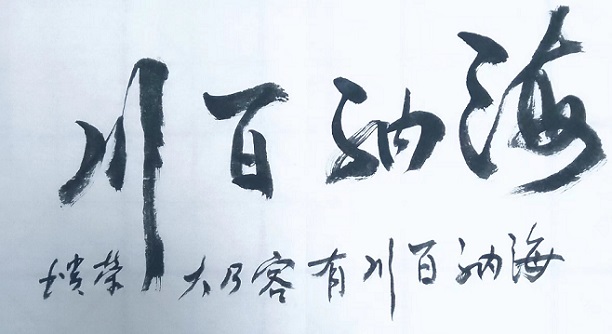 海纳百川
海纳百川有容乃大 荣